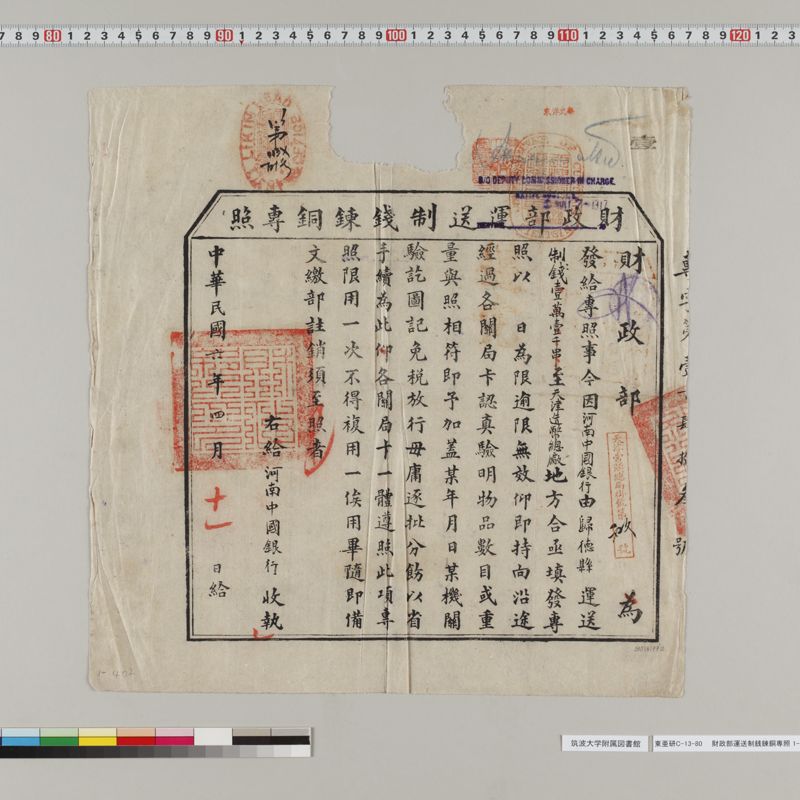 7 8 9 80 1 2 3 4 5 6 7 8 9 90 1 2 3 4 5 6 7 8 9 100 1 2 3 4 5 6 7 8 9 110 1 2 3 4 5 6 7 8 9 120 1 2 3
LIKIN
壹
DEPUTY COMMISSIONER IN CHARGE.
財政部運送制錢鍊銅專照
財政部 為
發給專照事今因河南中國銀行由歸德縣 運送
制錢壹萬壹千串至天津造幣總廠地方合亟填發專
照以 日為限逾限無效仰即持向沿途
經過各關局卡認真驗明物品數目或重
量與照相符即予加蓋某年月日某機關
驗訖圖記免稅放行毋庸逐批分飭以省
手續為此仰各關局卡一體遵照此項專
照限用一次不得複用一俟用畢隨即備
文繳部註銷須至照者
右給河南中國銀行 收執
中華民國六年四月十一日給
筑波大学附属図書館
東亜研C-13-80 財政部運送制銭鍊銅専照 1-